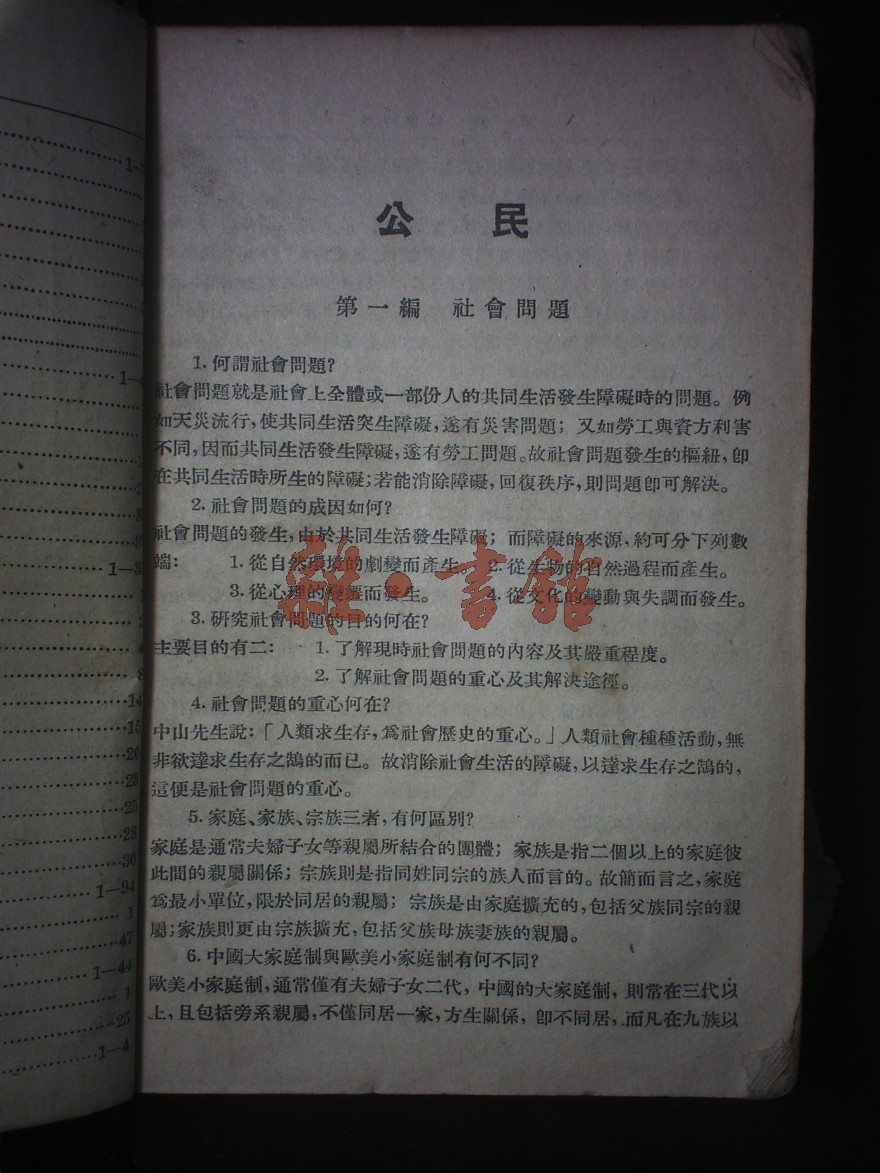 公民
第一編 社會問題
1. 何謂社會問題?
社會問題就是社會上全體或一部份人的共同生活發生障礙時的問題。例
如天災流行,使共同生活突生障礙,遂有災害問題; 又如勞工與資方利害
不同,因而共同生活發生障礙,遂有勞工問題。故社會問題發生的樞紐,卽
在共同生活時所生的障礙;若能消除障礙,回復秩序,則問題卽可解決。
2. 社會問題的成因如何?
社會問題的發生,由於共同生活發生障礙; 而障礙的來源,約可分下列數
端: 1. 從自然環境的劇變而產生。 2. 從生物的自然過程而產生。
3. 從心理的變遷而發生。 4. 從文化的變動與失調而發生。
雜·書館
3. 研究社會問題的目的何在?
主要目的有二: 1. 了解現時社會問題的內容及其嚴重程度。
2. 了解社會問題的重心及其解決途徑。
4. 社會問題的重心何在?
中山先生說:「人類求生存,爲社會歷史的重心。」人類社會種種活動,無
非欲達求生存之鵠的而已。故消除社會生活的障礙,以達求生存之鵠的,
這便是社會問題的重心。
5. 家庭、家族、宗族三者,有何區別?
家庭是通常夫婦子女等親屬所結合的團體; 家族是指二個以上的家庭彼
此間的親屬關係; 宗族則是指同姓同宗的族人而言的。故簡而言之,家庭
爲最小單位,限於同居的親屬; 宗族是由家庭擴充的,包括父族同宗的親
屬;家族則更由宗族擴充,包括父族母族妻族的親屬。
6. 中國大家庭制與歐美小家庭制有何不同?
歐美小家庭制,通常僅有夫婦子女二代, 中國的大家庭制, 則常在三代以
上,且包括旁系親屬,不僅同居一家,方生關係, 卽不同居,而凡在九族以
14
15
20
23
25
28
30
1—94
1
47
1—44
1
25
1—4